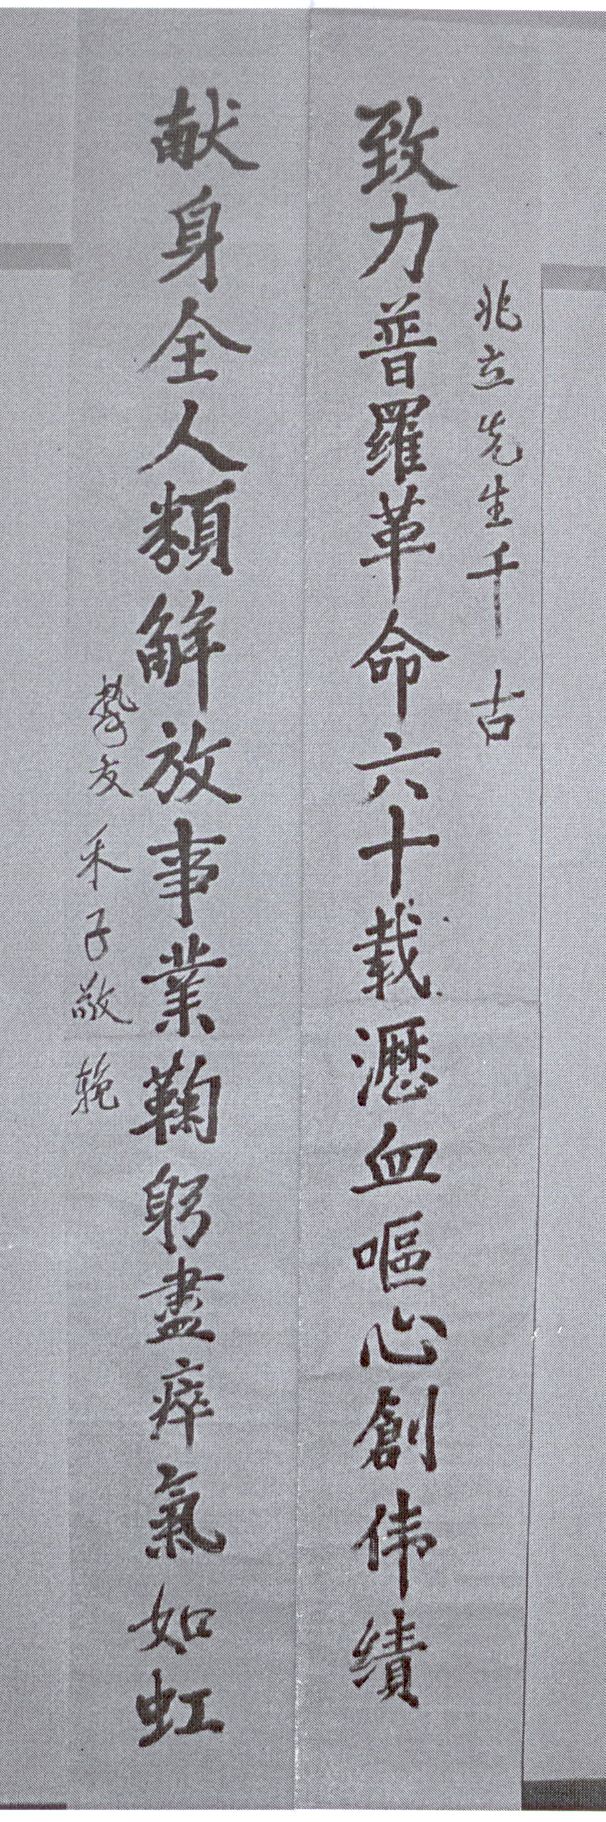 兆立先生千古
致力普羅革命六十載瀝血嘔心創伟績
献身全人類解放事業鞠躬盡瘁氣如虹
摯友 禾子敬輓